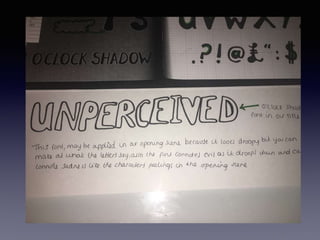 UVWXY
O'CLOCK SHADOW
.?!@£":$
UNPERCEIVED
O'Clock Shadow
font in our title
"This font, may be applied in our opening scene because it looks droopy but you can
make out what the letters say, also the font connotes evil as it droops down and can
connote sadness like the characters feelings in the opening scene